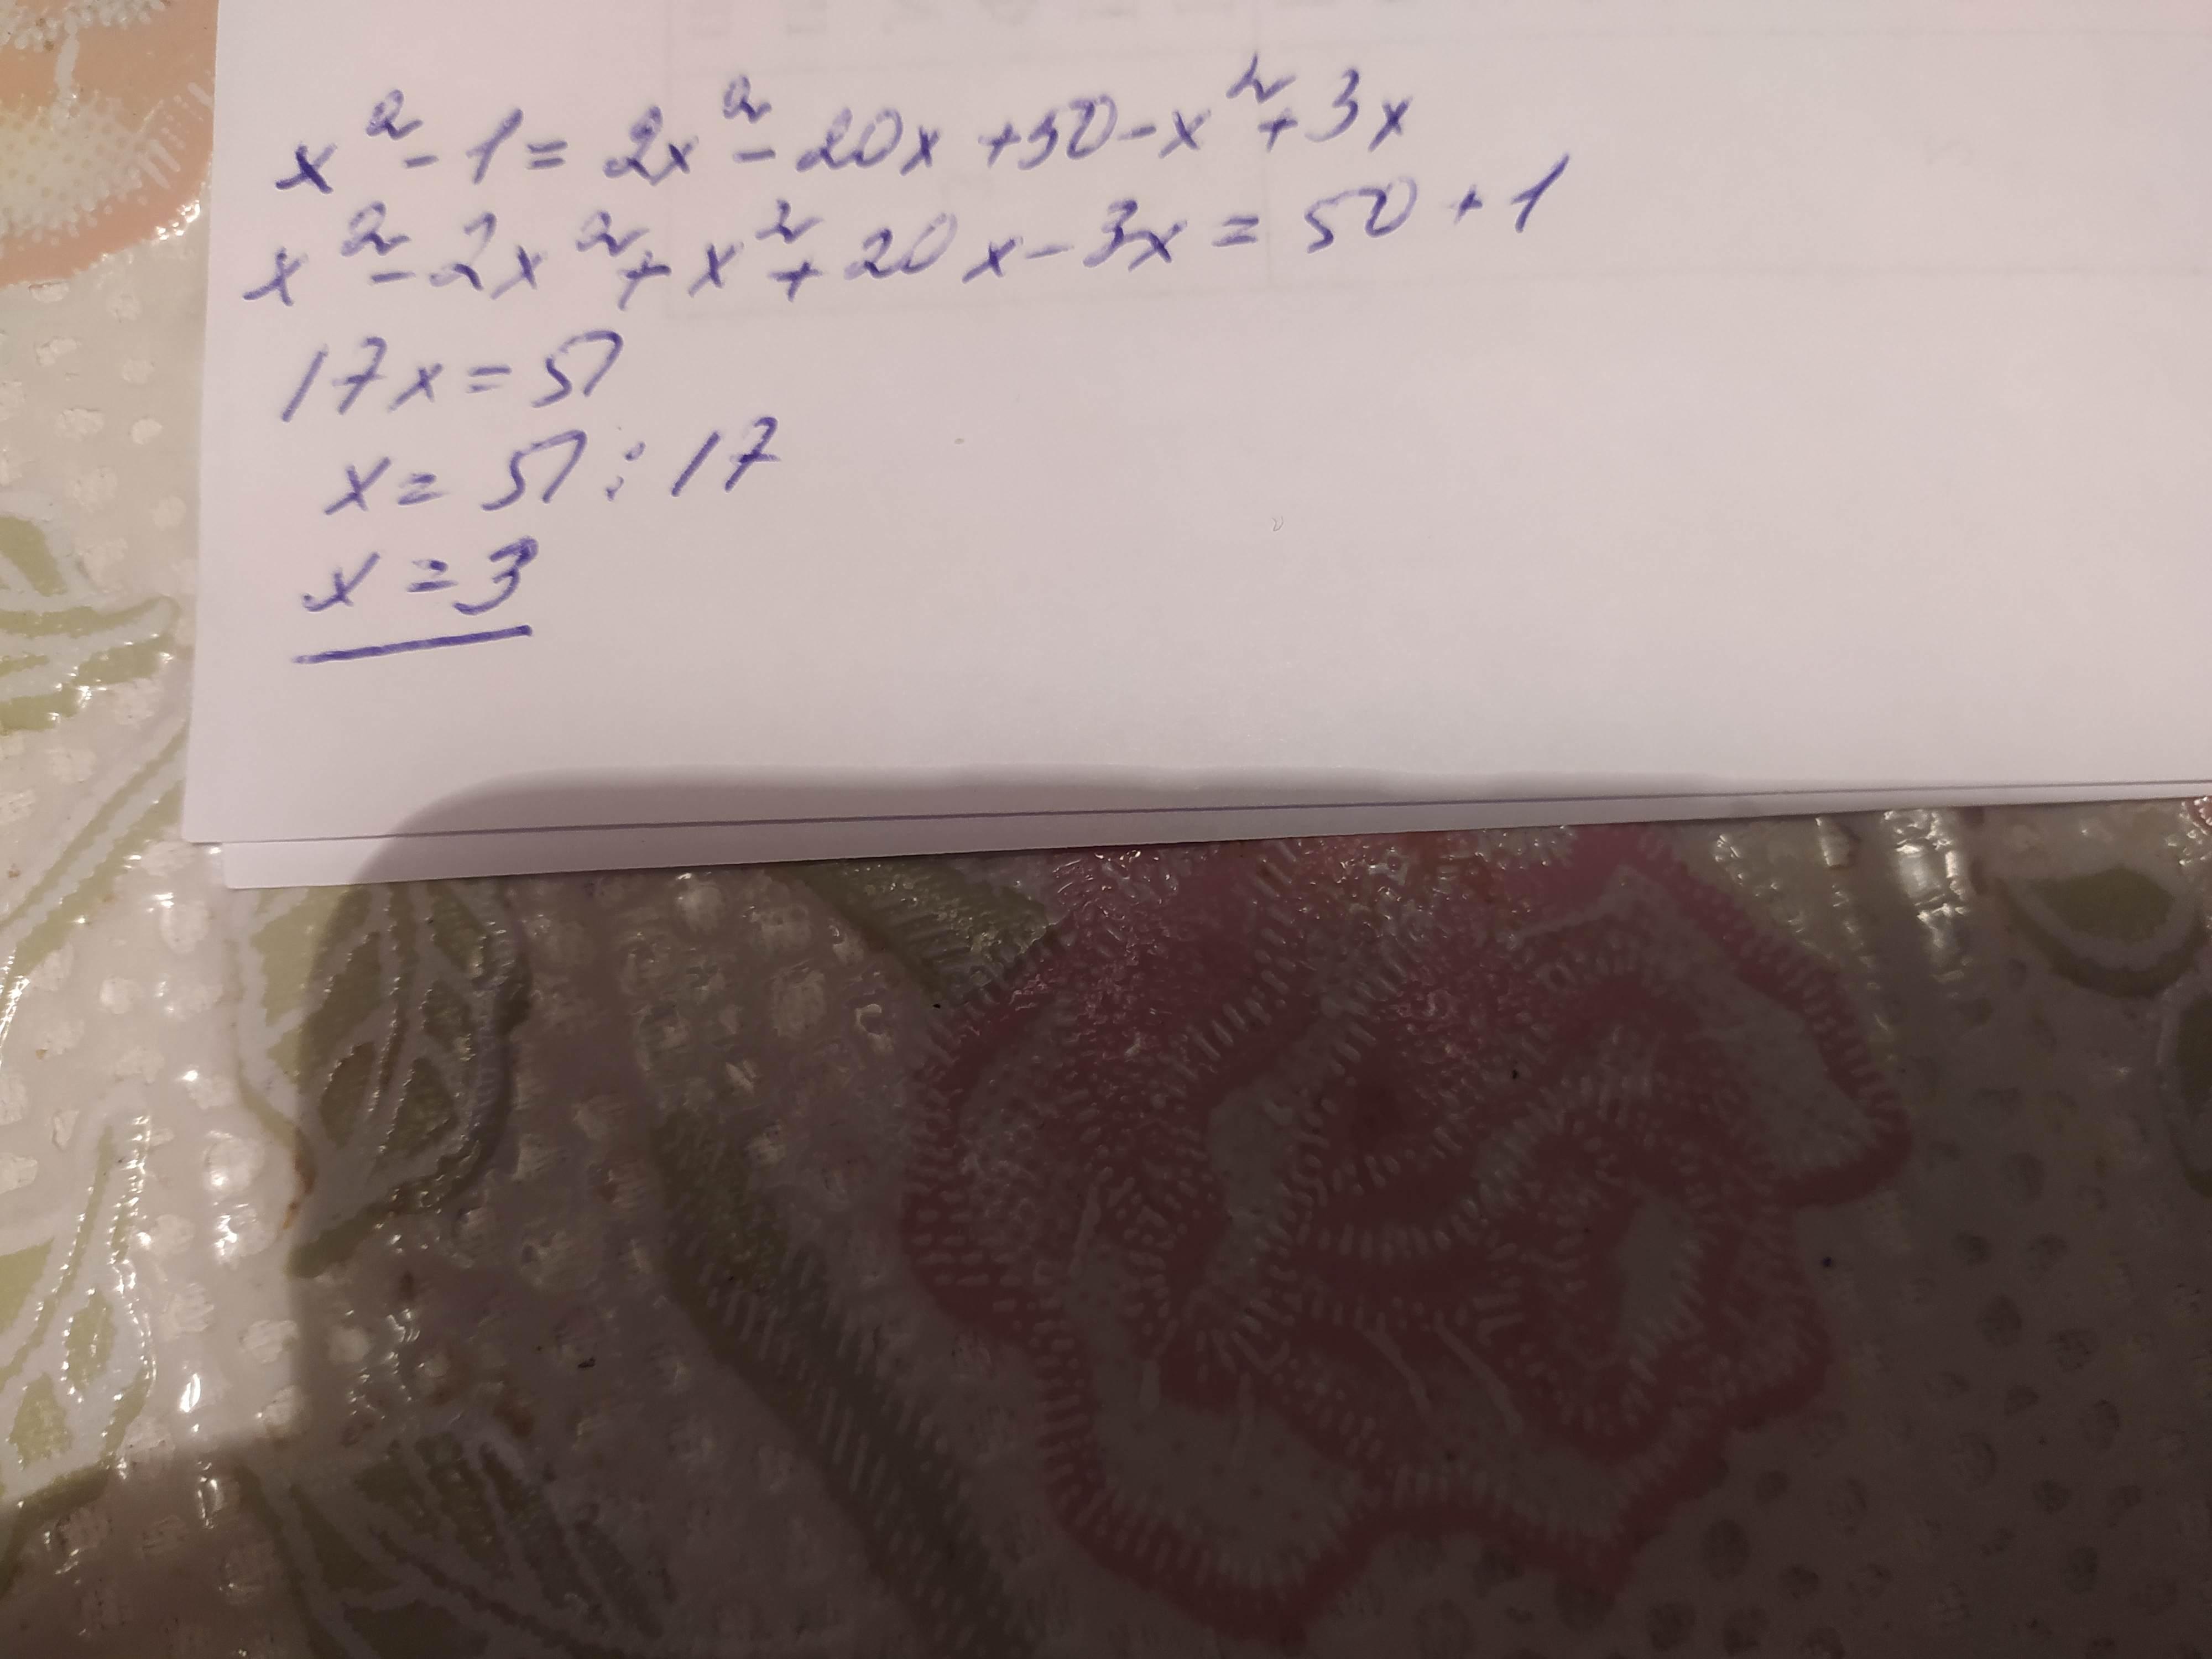 x² - 1 = 2x² - 20x + 50 - x² + 3x
x² - 2x² + x² + 20x - 3x = 50 + 1
17x = 51
x = 51 : 17
x = 3